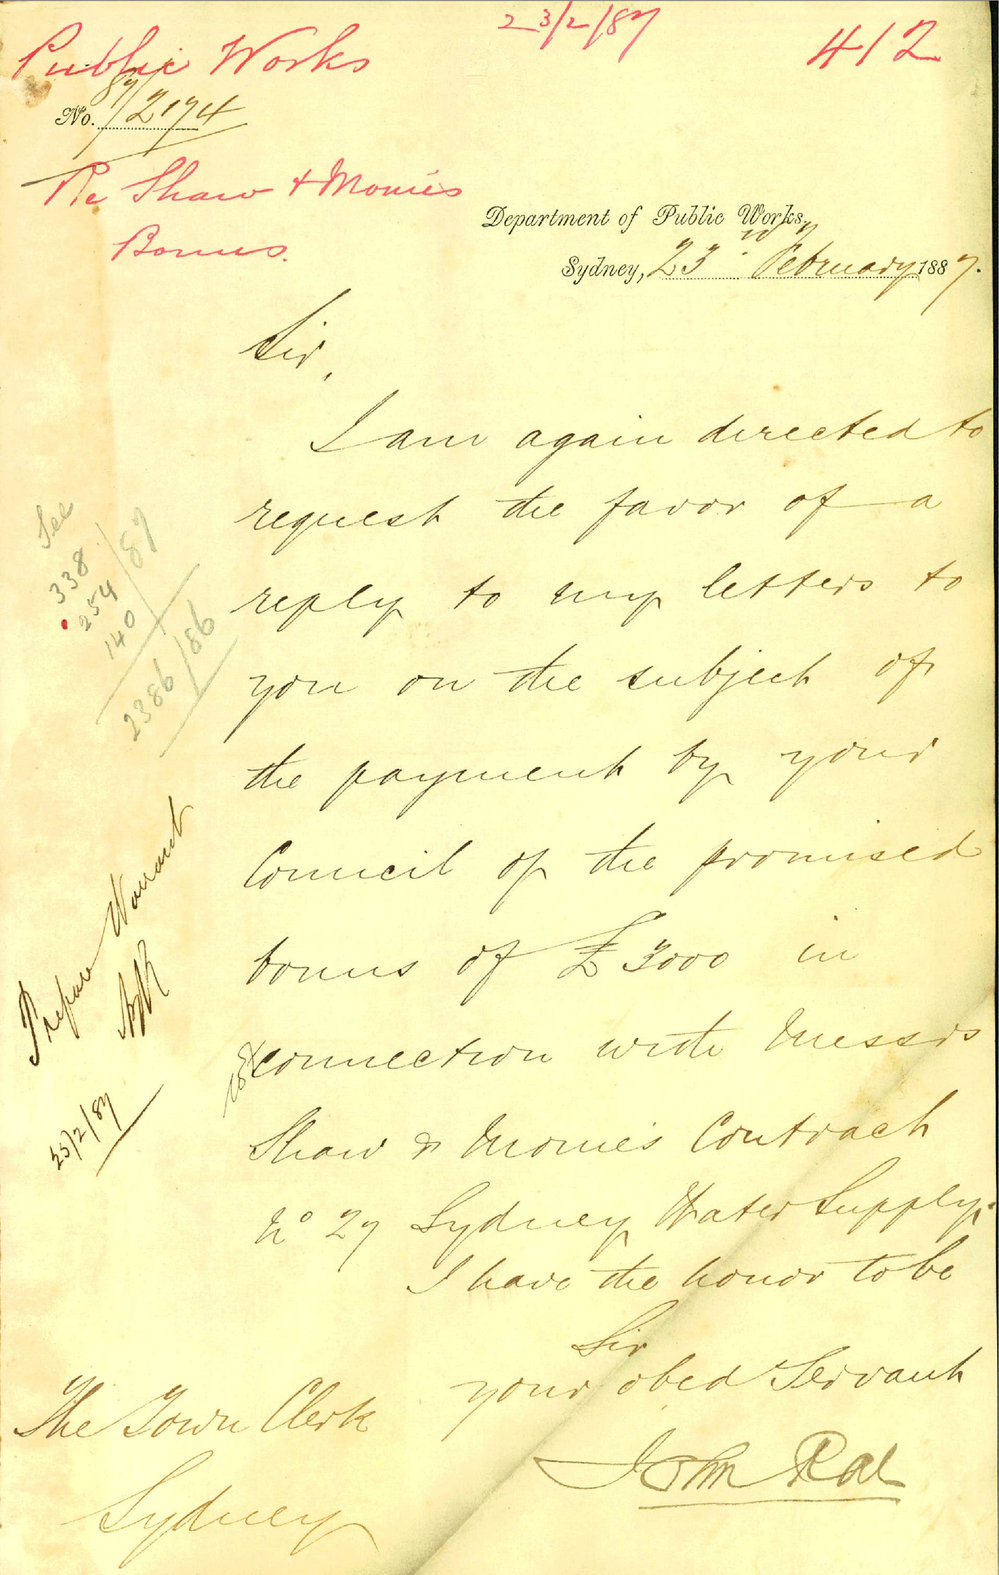 Public Works
23/2/87
412
No. 87/2174
Re Shaw & Monies
Bonus.
Department of Public Works,
Sydney, 23rd February 1887.
Sir,
I am again directed to
request the favor of a
reply to my letters to
you on the subject of
the payment by your
Council of the promised
bonus of £3000 in
connection with Messrs
Shaw & Monie's Contract
No 27 Sydney Water Supply.
I have the honor to be
Sir
your obed Servant
John Rae
The Town Clerk
Sydney
See
338
254
140 /87
2386/86
Prepare Warrant
25/2/87